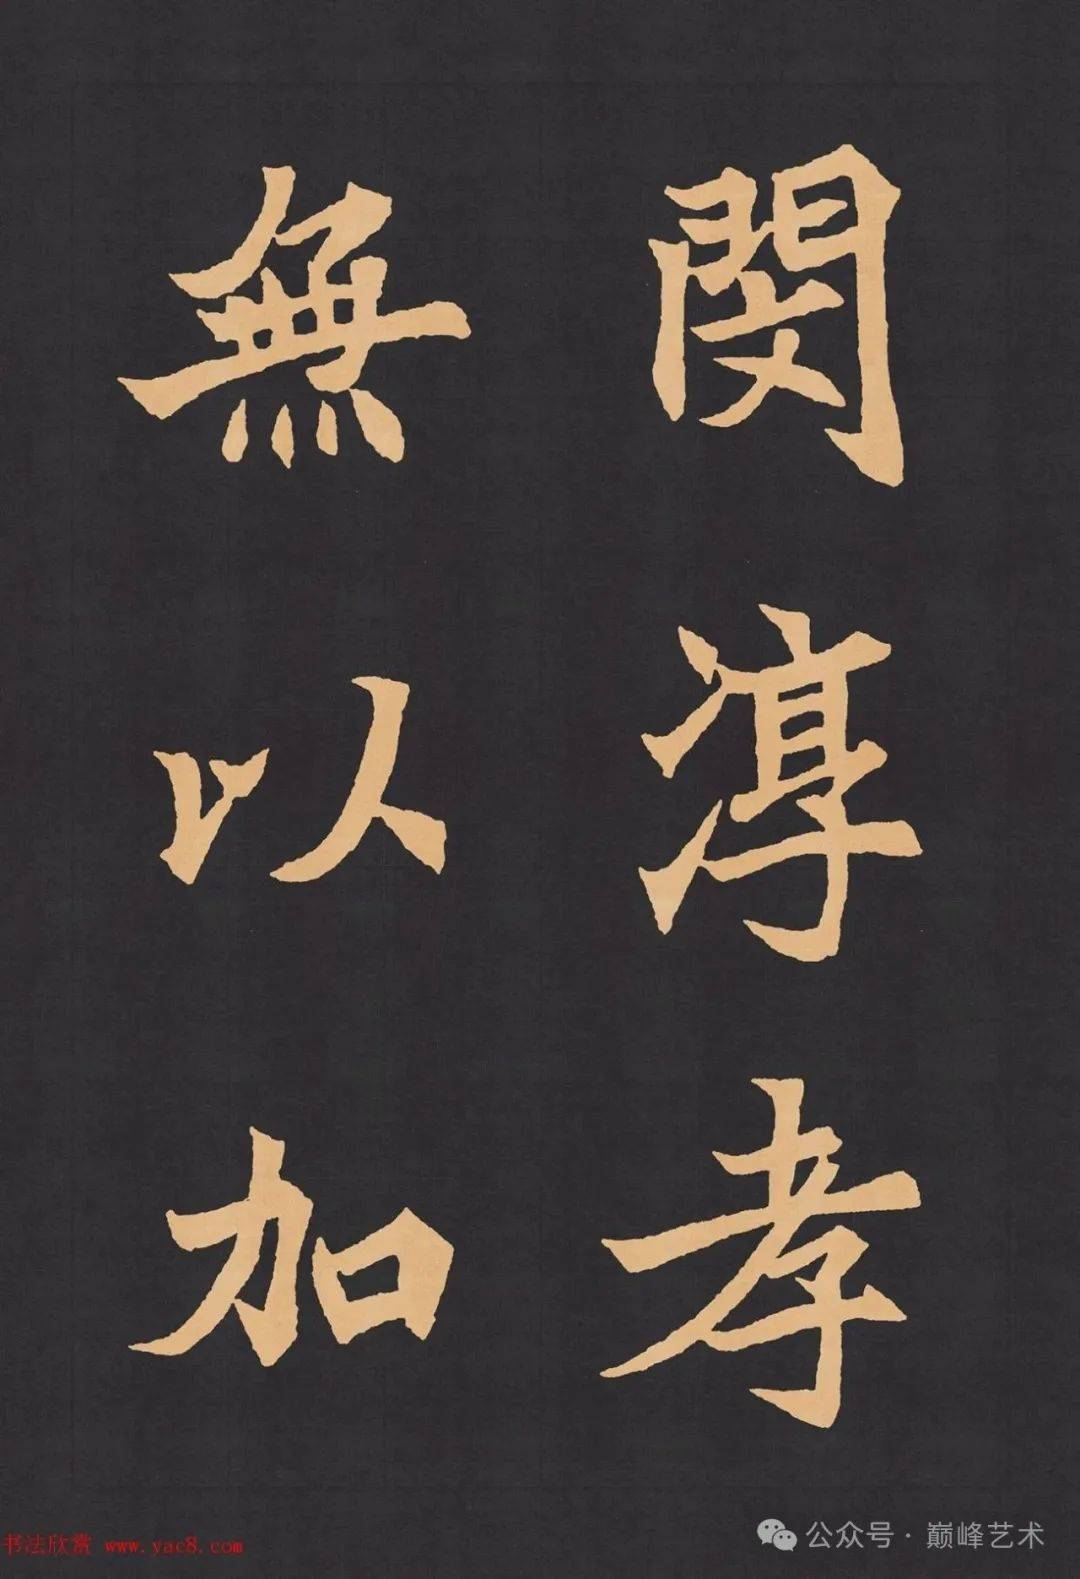 閔淳孝
無以加
书法欣赏 www.yac8.com
公众号·巅峰艺术